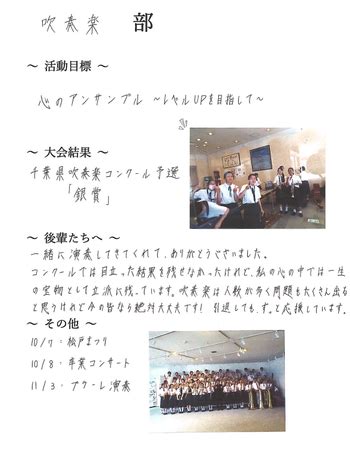 吹奏楽 部
～ 活動目標 ～
心のアンサンブル ～レベルUPを目指して～
～ 大会結果 ～
千葉県吹奏楽コンクール予選
「銀賞」
～ 後輩たちへ ～
一緒に演奏してきてくれて、ありがとうございました。
コンクールでは目立った結果を残せなかったけれど、私の心の中では一生
の宝物として立派に残っています。吹奏楽は人数が多く問題もたくさん出る
と思うけれど今の皆なら絶対大丈夫です! 引退しても、ずっと応援しています。
～ その他 ～
10/7：松戸まつり
10/8：卒業コンサート
11/3：アワーレ演奏